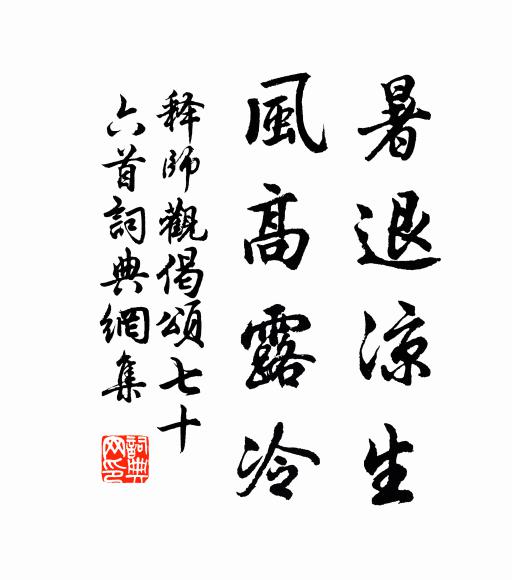 暑退涼生
風高露冷
释師觀偈頌七十
六首詞典網集
詞典网印